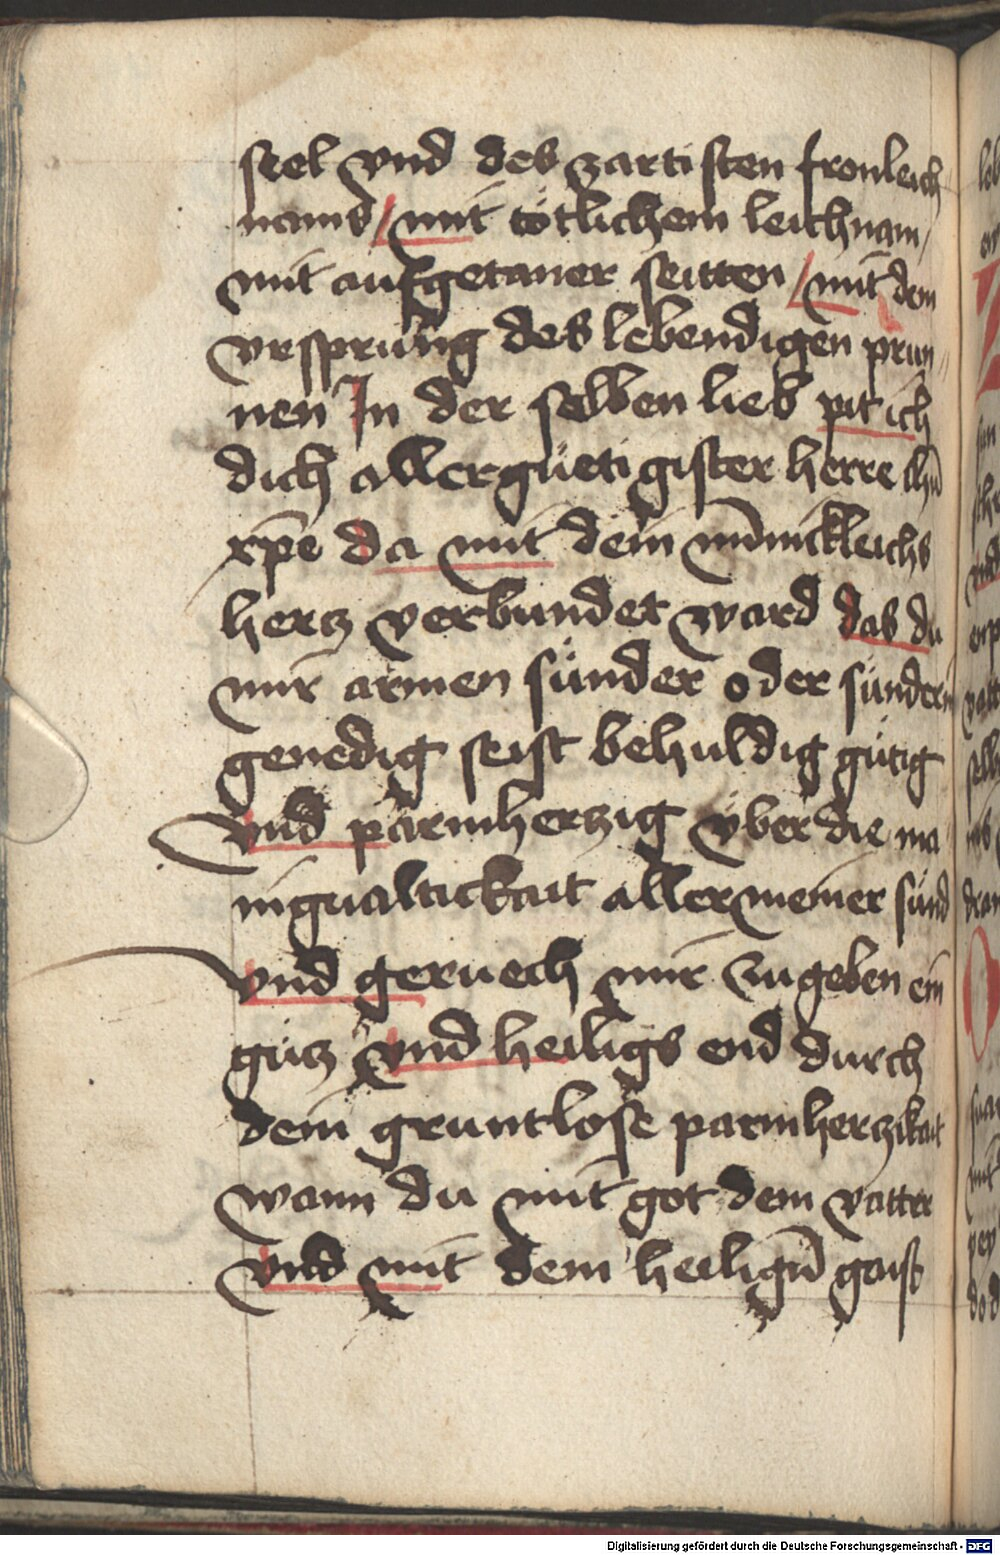 seel vnd des zartisten fronleich
nams / mit tötlichem leichnam /
mit aufgetaner seitten / mit dem
vrsprung des lebendigen prun„
nen In der selben lieb pit ich
dich allergüetigister herre ihū
xp̄e da mit dein mīnickleichs
hercz verbundet ward das du
mir armen sünder oder sünderin
genedig seist behuldig gütig
vnd parmherczig über die ma
nigualtickait aller meiner sünd
vnd geruech mir zugeben ein
gücz vnd heiligs end durch
dein gruntlose parmherczikait
wann du mit got dem vatter
vnd mit dem heiligū gaist
Digitalisierung gefördert durch die Deutsche Forschungsgemeinschaft - DFG